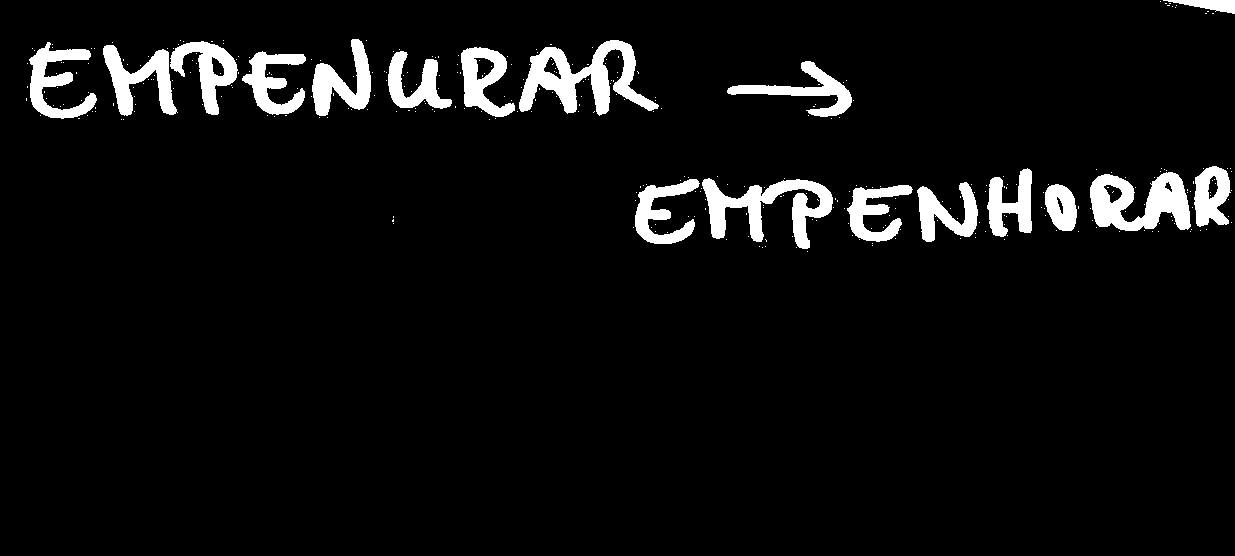 EMPENURAR →
EMPENHORAR